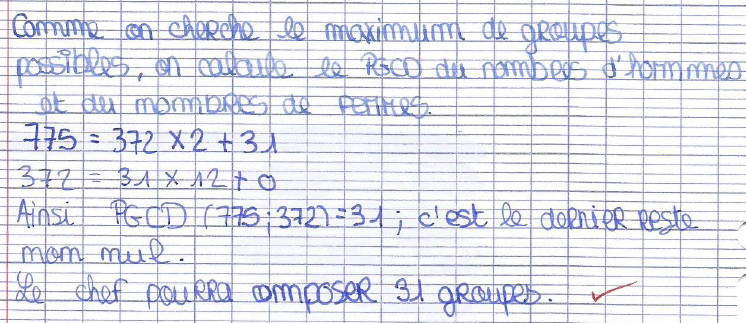 Comme on cherche le maximum de groupes
possibles, on calcule le PGCD du nombres d'hommes
et du nombres de femmes.
775 = 372 × 2 + 31
372 = 31 × 12 + 0
Ainsi PGCD (775 ; 372) = 31 ; c'est le dernier reste
non nul.
Le chef pourra composer 31 groupes.